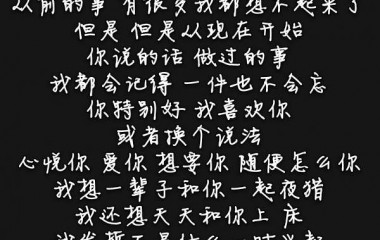 从前的事 有很多我都想不起来了
但是 但是从现在开始
你说的话 做过的事
我都会记得 一件也不会忘
你特别好 我喜欢你
或者换个说法
心悦你 爱你 想要你 随便怎么你
我想一辈子和你一起夜猎
我还想天天和你上 床
我发誓不是什么一时兴起